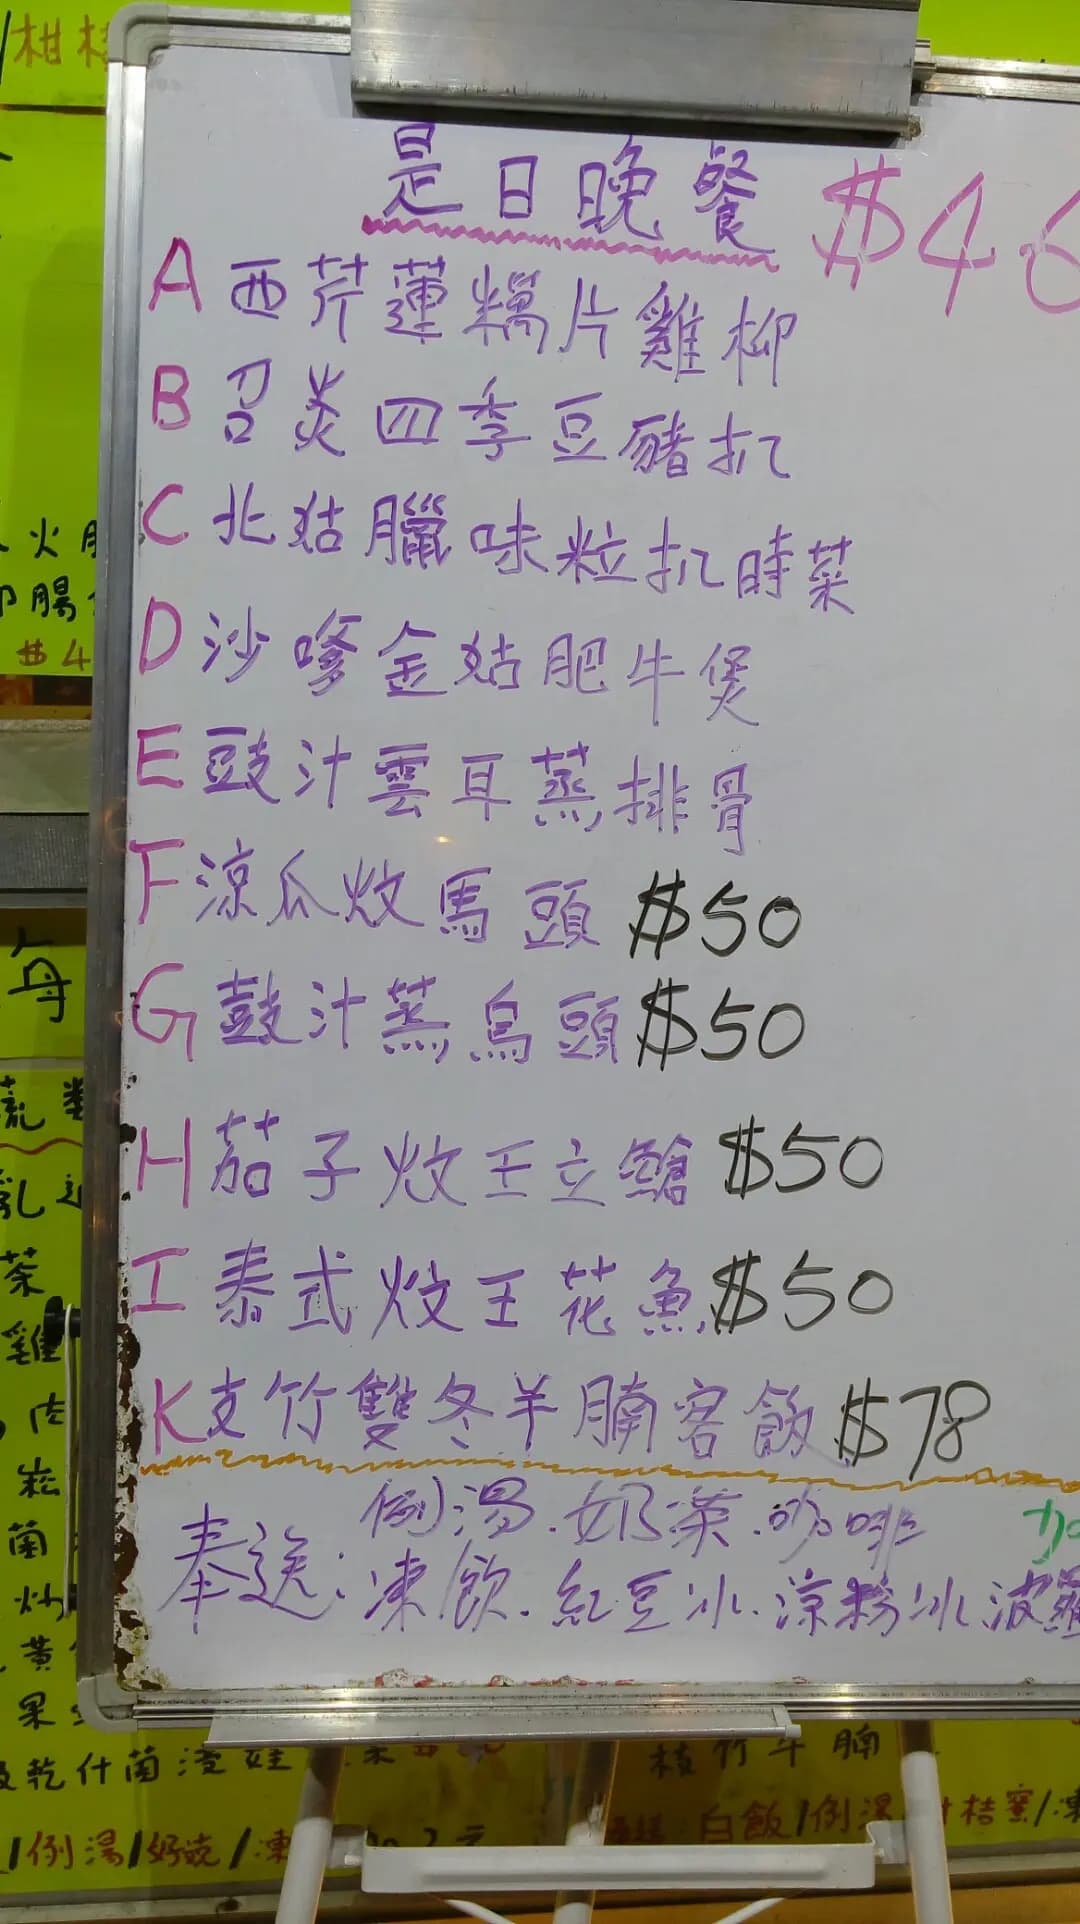 是日晚餐 $46
A 西芹蓮糯片雞柳
B 召炎四季豆豬扒
C 北姑臘味粒扒時菜
D 沙嗲金姑肥牛煲
E 豉汁雲耳蒸排骨
F 涼瓜炆馬頭 $50
G 鼓汁蒸烏頭 $50
H 茄子炆王立鱠 $50
I 泰式炆王花魚 $50
K 支竹雙冬羊腩客飯 $78
奉送: 例湯.奶茶.咖啡
凍飲.紅豆冰.涼粉冰.波蘿
加
柑桔
火
腸
$4
每
茶
雞
肉
菘
菌
炒
黃
果
乾什菌
枝竹牛腩
/例湯/好豉/凍
白飯/例湯 桔蜜/凍